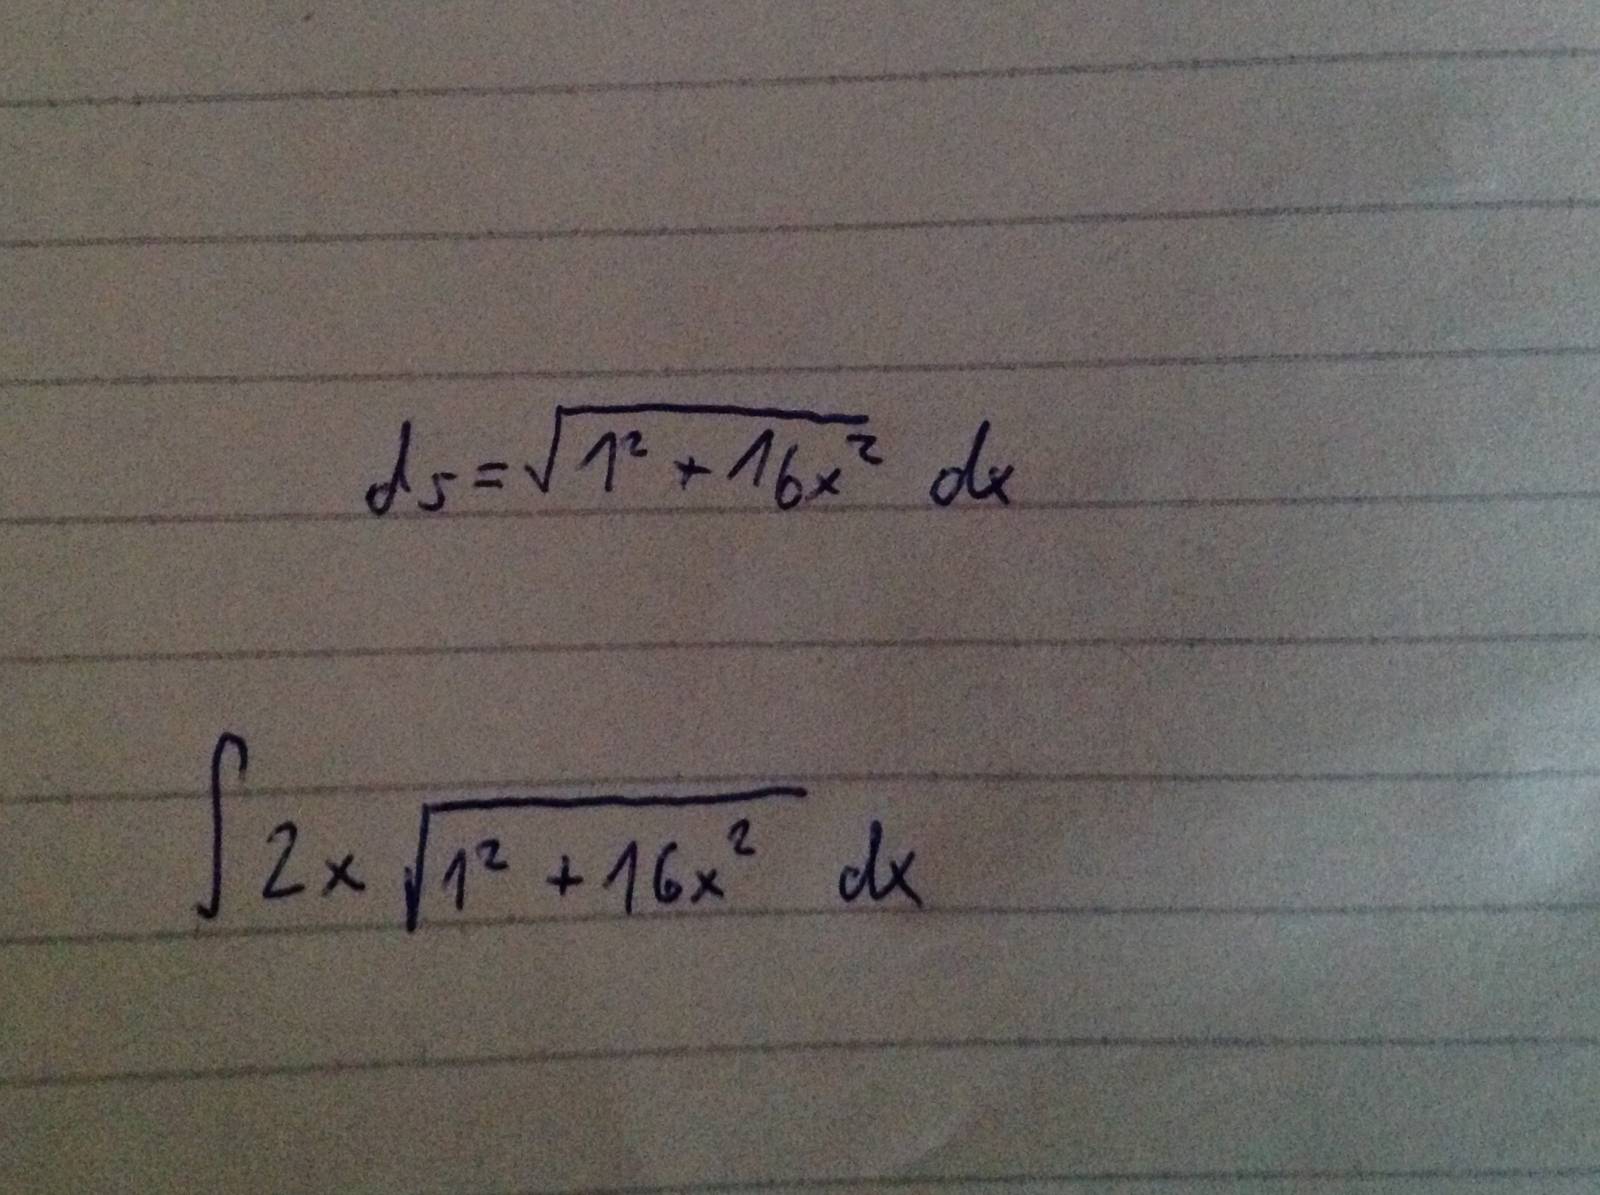 ds = √(1² + 16x²) dx
∫ 2x √(1² + 16x²) dx